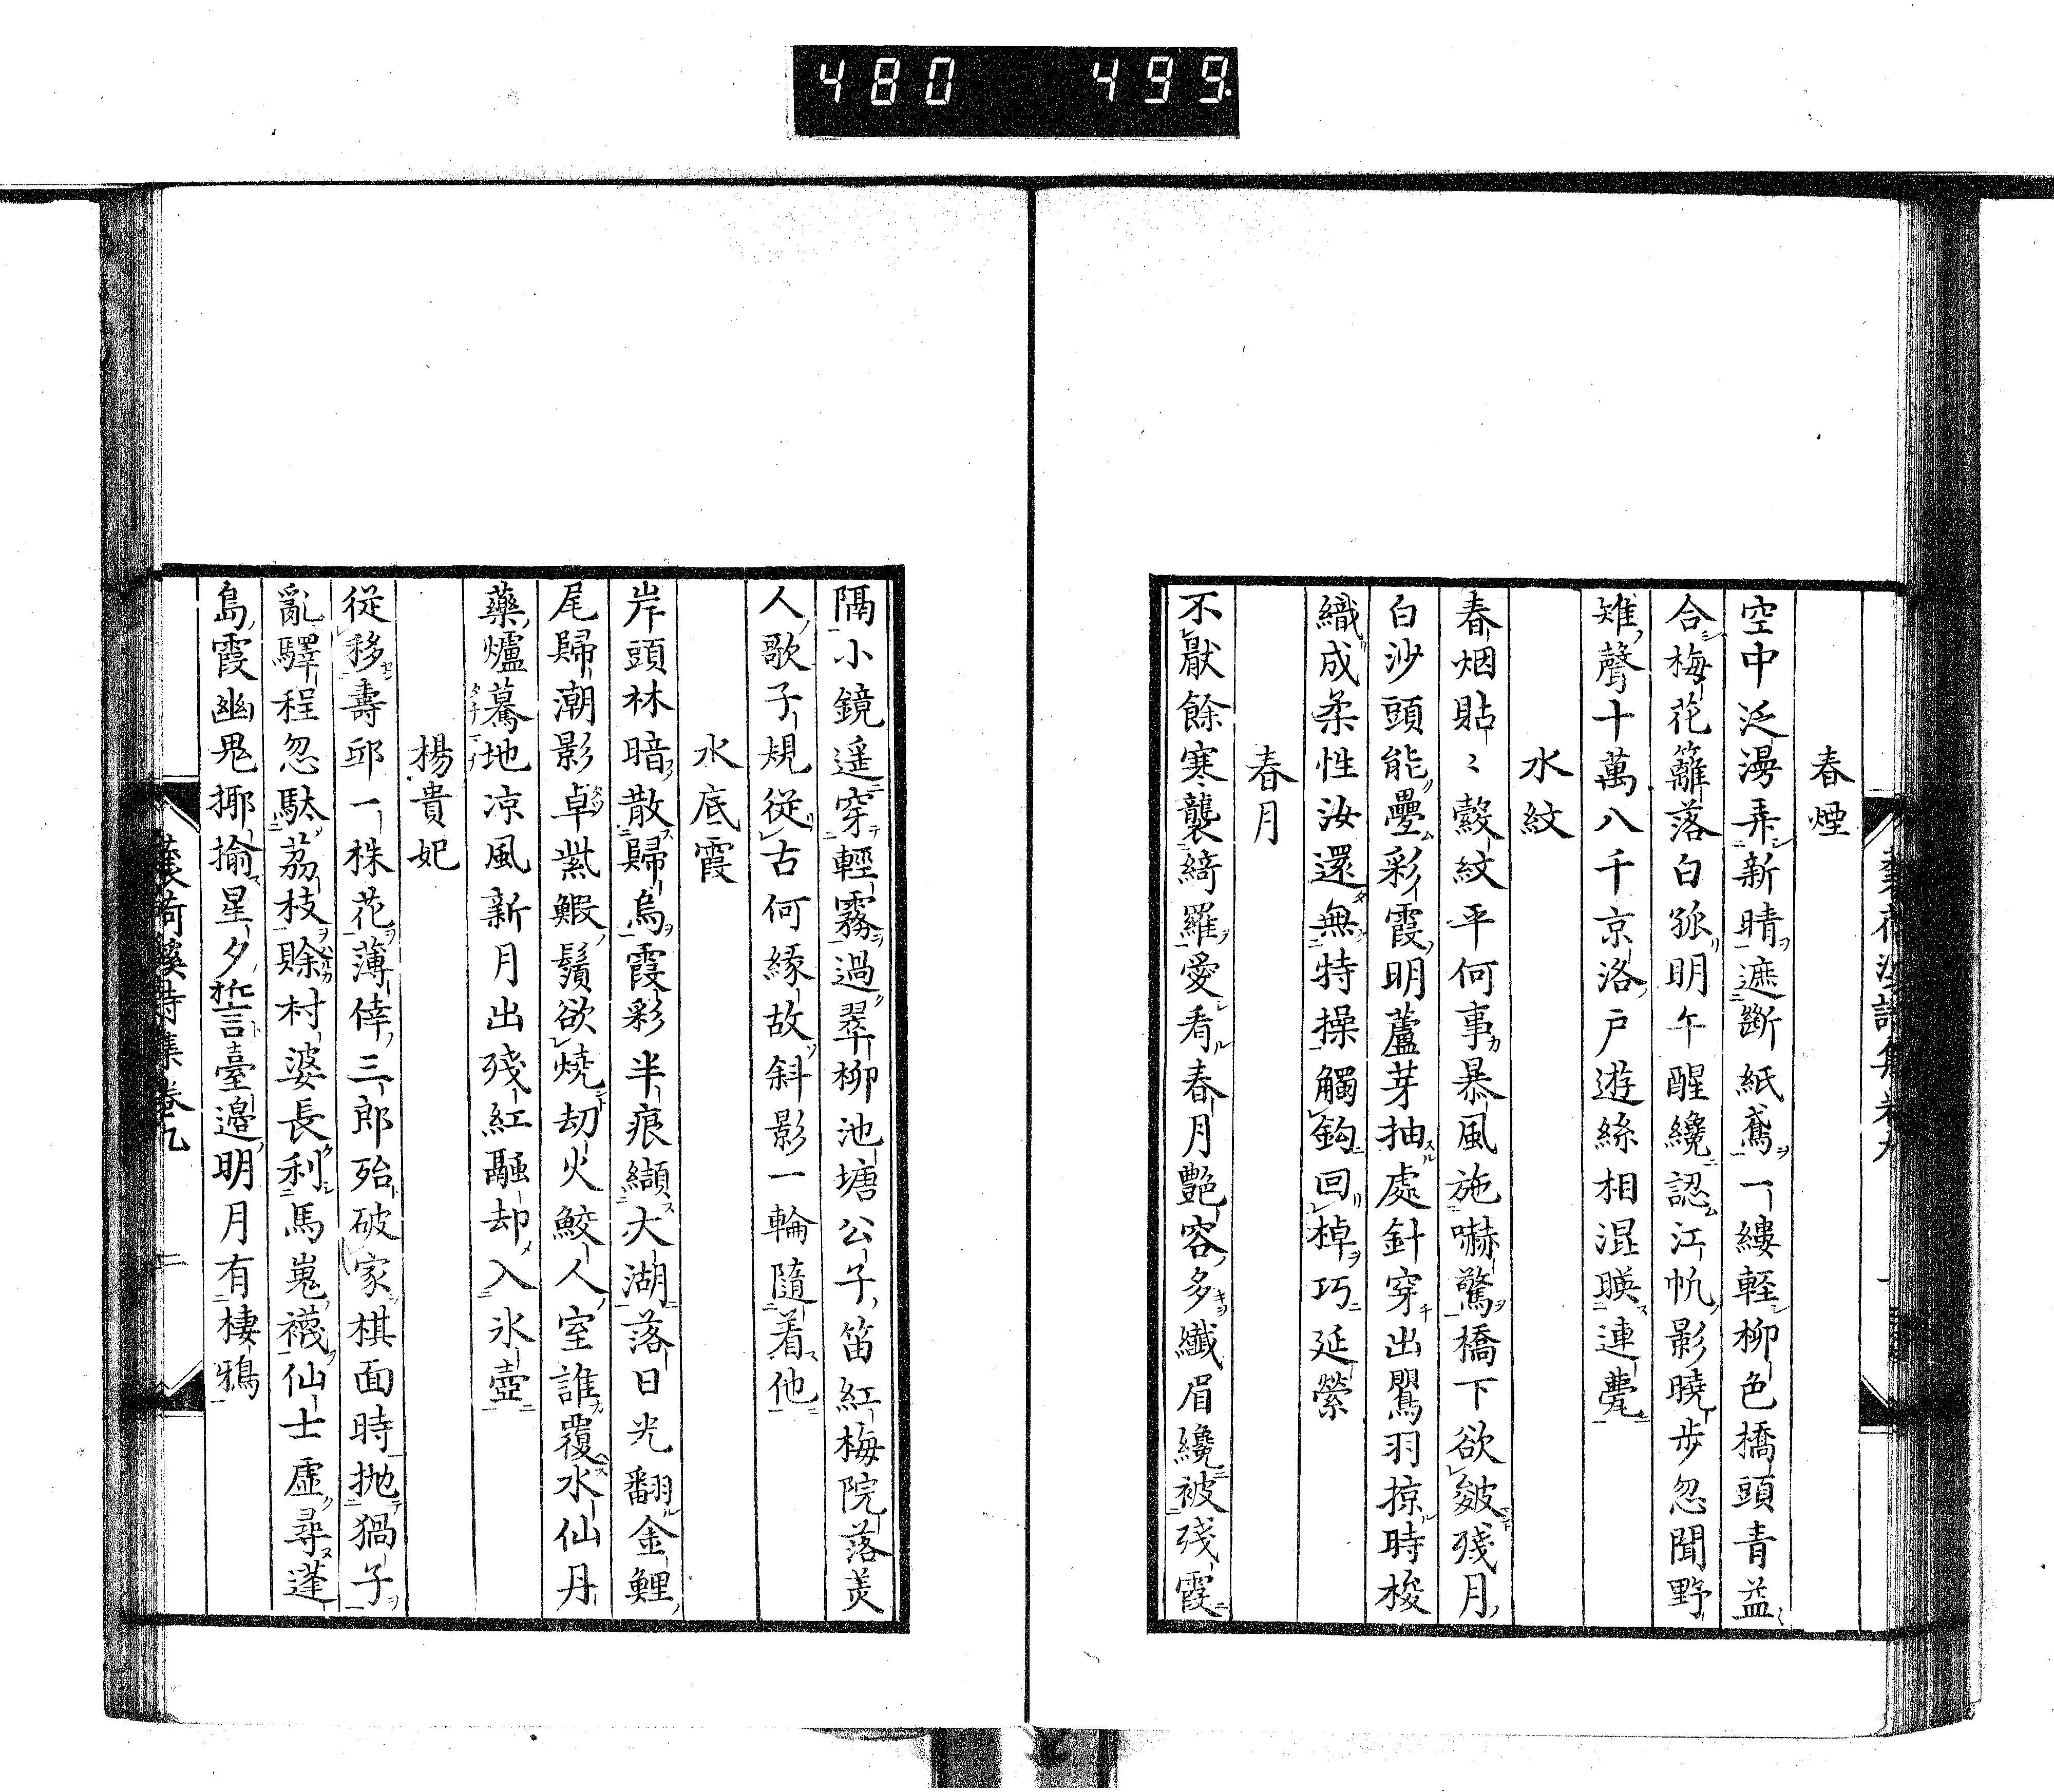 480 499.
春煙
空中泛漫弄新晴遮斷紙鳶一縷輕柳色橋頭青益
合梅花籬落白孤明午醒纔認江帆影曉步忽聞野
雉聲十萬八千京洛戶遊絲相混暎連甍
水紋
春烟貼〻縠紋平何事暴風施嚇驚橋下欲皴殘月
白沙頭能疊彩霞明蘆芽抽處針穿出鷖羽掠時梭
織成柔性汝還無特操觸鈎回棹巧延縈
春月
不厭餘寒襲綺羅愛看春月艷容多纖眉纔被殘霞
隔小鏡遥穿輕霧過翠柳池塘公子笛紅梅院落美
人歌子規從古何緣故斜影一輪隨着他
水底霞
岸頭林暗散歸烏霞彩半痕纈大湖落日光翻金鯉
尾歸潮影卓紫鰕鬚欲燒劫火鮫人室誰覆水仙丹
藥爐驀地凉風新月出殘紅融却入氷壺
楊貴妃
從移壽邸一株花薄倖三郎殆破家棋面時抛猧子
亂驛程忽駄荔枝賒村婆長利馬嵬襪仙士虛尋蓬
島霞幽鬼揶揄星夕誓臺邊明月有棲鴉